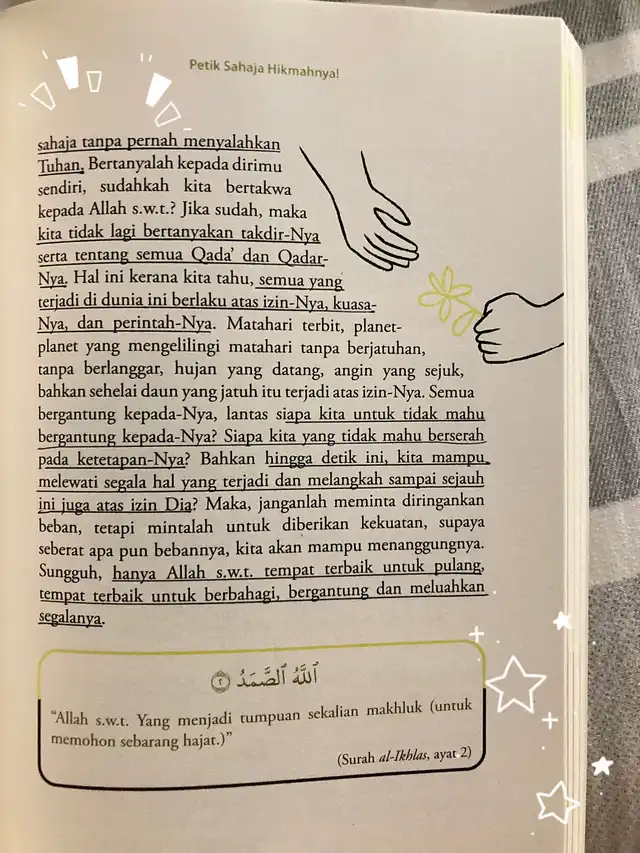 Petik Sahaja Hikmahnya!
sahaja tanpa pernah menyalahkan
Tuhan. Bertanyalah kepada dirimu
sendiri, sudahkah kita bertakwa
kepada Allah s.w.t.? Jika sudah, maka
kita tidak lagi bertanyakan takdir-Nya
serta tentang semua Qada’ dan Qadar-
Nya. Hal ini kerana kita tahu, semua yang
terjadi di dunia ini berlaku atas izin-Nya, kuasa-
Nya, dan perintah-Nya. Matahari terbit, planet-
planet yang mengelilingi matahari tanpa berjatuhan,
tanpa berlanggar, hujan yang datang, angin yang sejuk,
bahkan sehelai daun yang jatuh itu terjadi atas izin-Nya. Semua
bergantung kepada-Nya, lantas siapa kita untuk tidak mahu
bergantung kepada-Nya? Siapa kita yang tidak mahu berserah
pada ketetapan-Nya? Bahkan hingga detik ini, kita mampu
melewati segala hal yang terjadi dan melangkah sampai sejauh
ini juga atas izin Dia? Maka, janganlah meminta diringankan
beban, tetapi mintalah untuk diberikan kekuatan, supaya
seberat apa pun bebannya, kita akan mampu menanggungnya.
Sungguh, hanya Allah s.w.t. tempat terbaik untuk pulang,
tempat terbaik untuk berbahagi, bergantung dan meluahkan
segalanya.
ٱللَّهُ ٱلصَّمَدُ ۝٢
“Allah s.w.t. Yang menjadi tumpuan sekalian makhluk (untuk
memohon sebarang hajat.)”
(Surah al-Ikhlas, ayat 2)